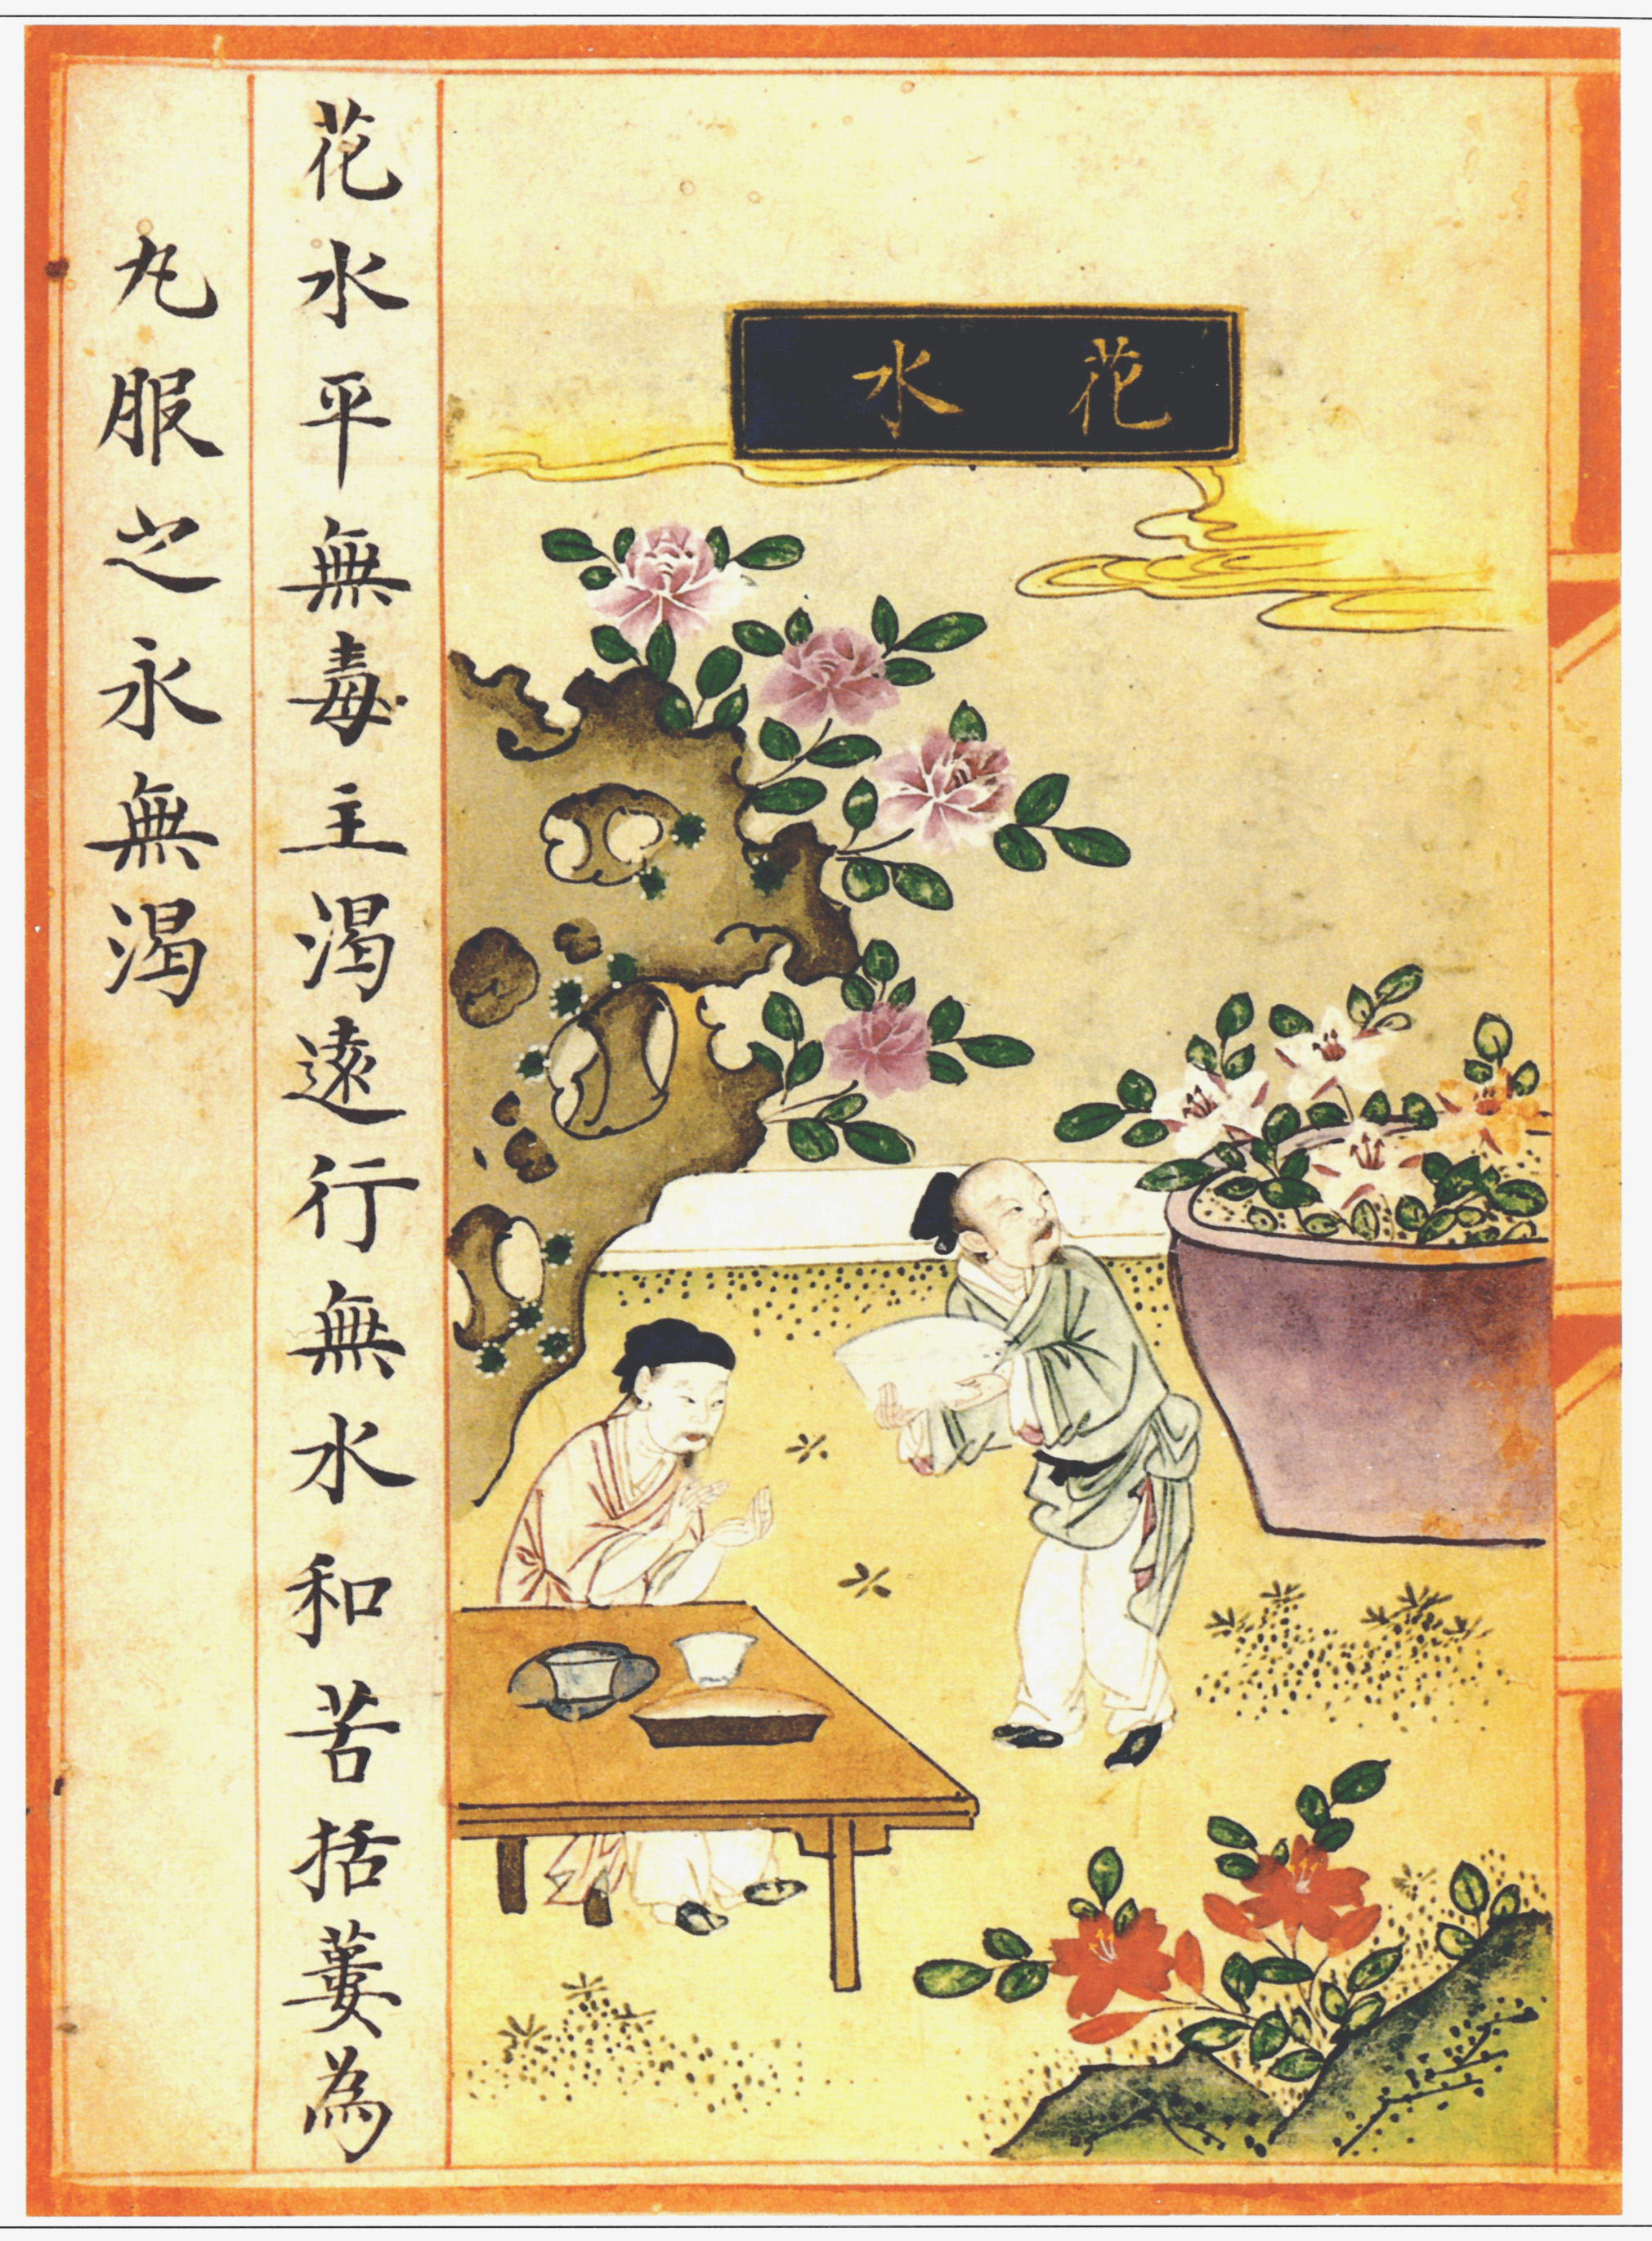 花水
花水平無毒主渴遠行無水和苦括蔞為
丸服之永無渴